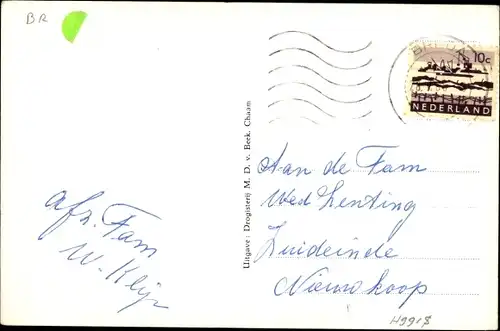 BR
10c
NEDERLAND
Uitgave: Drogisterij M. D. v. Beek, Chaam
Aan de Fam
Wed Lenting
Zuideinde
Nieuwkoop
afz. Fam
W. Klijn
H9918